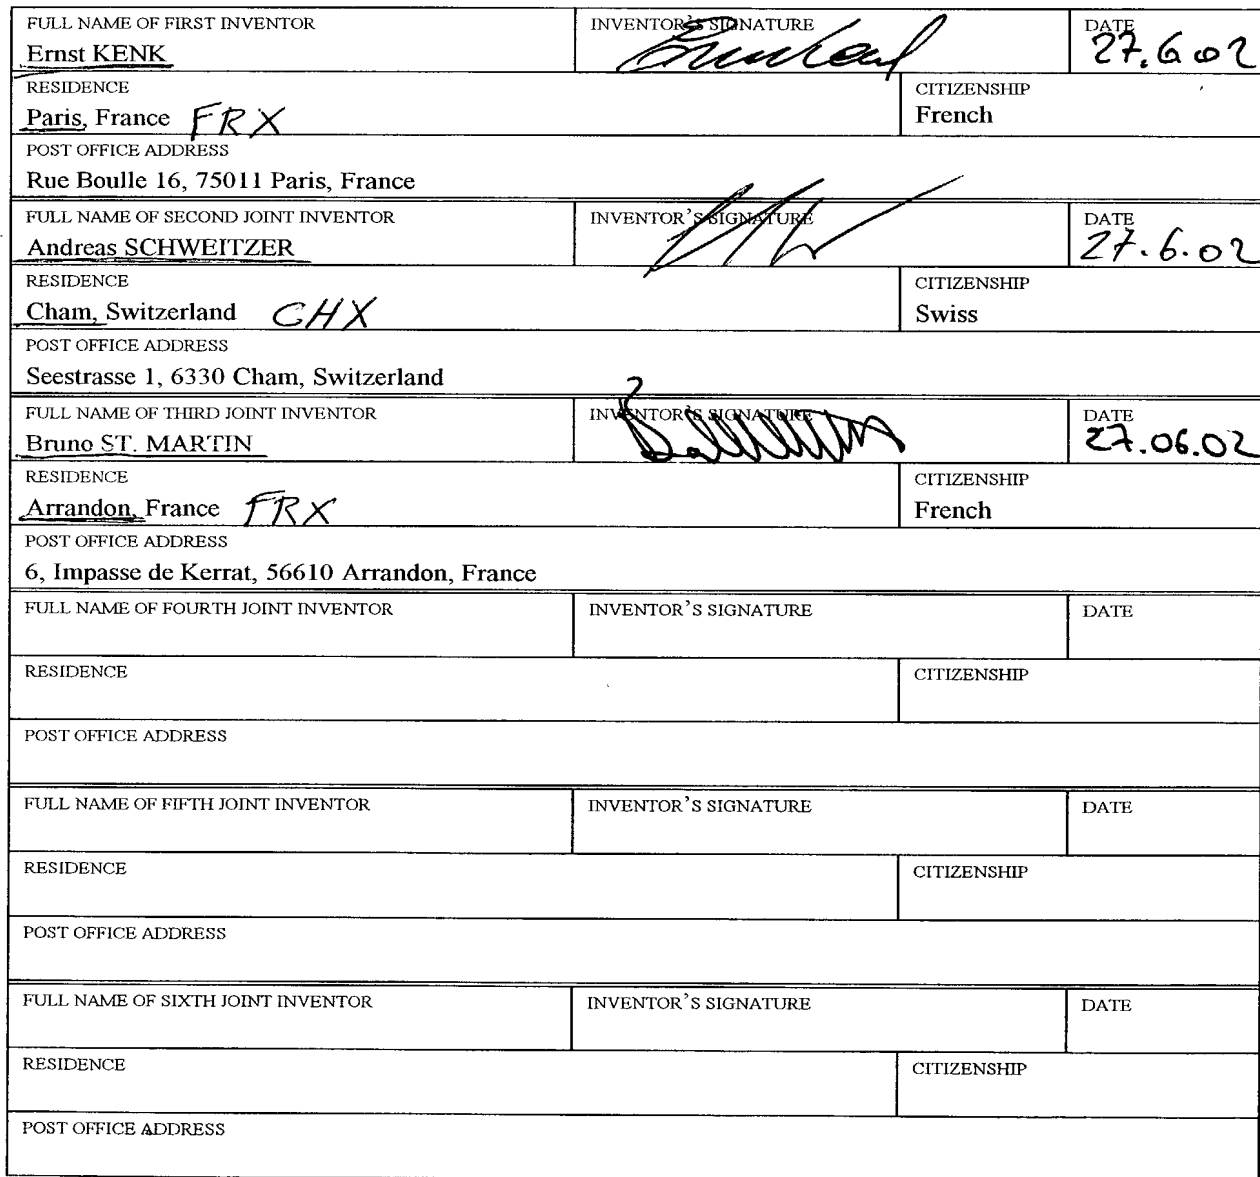 FULL NAME OF FIRST INVENTOR INVENTOR'S SIGNATURE DATE
Ernst KENK 27.6.02
RESIDENCE CITIZENSHIP
Paris, France FRX French
POST OFFICE ADDRESS
Rue Boulle 16, 75011 Paris, France
FULL NAME OF SECOND JOINT INVENTOR INVENTOR'S SIGNATURE DATE
Andreas SCHWEITZER 27.6.02
RESIDENCE CITIZENSHIP
Cham, Switzerland CHX Swiss
POST OFFICE ADDRESS
Seestrasse 1, 6330 Cham, Switzerland
FULL NAME OF THIRD JOINT INVENTOR INVENTOR'S SIGNATURE DATE
Bruno ST. MARTIN 27.06.02
RESIDENCE CITIZENSHIP
Arrandon, France FRX French
POST OFFICE ADDRESS
6, Impasse de Kerrat, 56610 Arrandon, France
FULL NAME OF FOURTH JOINT INVENTOR INVENTOR'S SIGNATURE DATE
RESIDENCE CITIZENSHIP
POST OFFICE ADDRESS
FULL NAME OF FIFTH JOINT INVENTOR INVENTOR'S SIGNATURE DATE
RESIDENCE CITIZENSHIP
POST OFFICE ADDRESS
FULL NAME OF SIXTH JOINT INVENTOR INVENTOR'S SIGNATURE DATE
RESIDENCE CITIZENSHIP
POST OFFICE ADDRESS